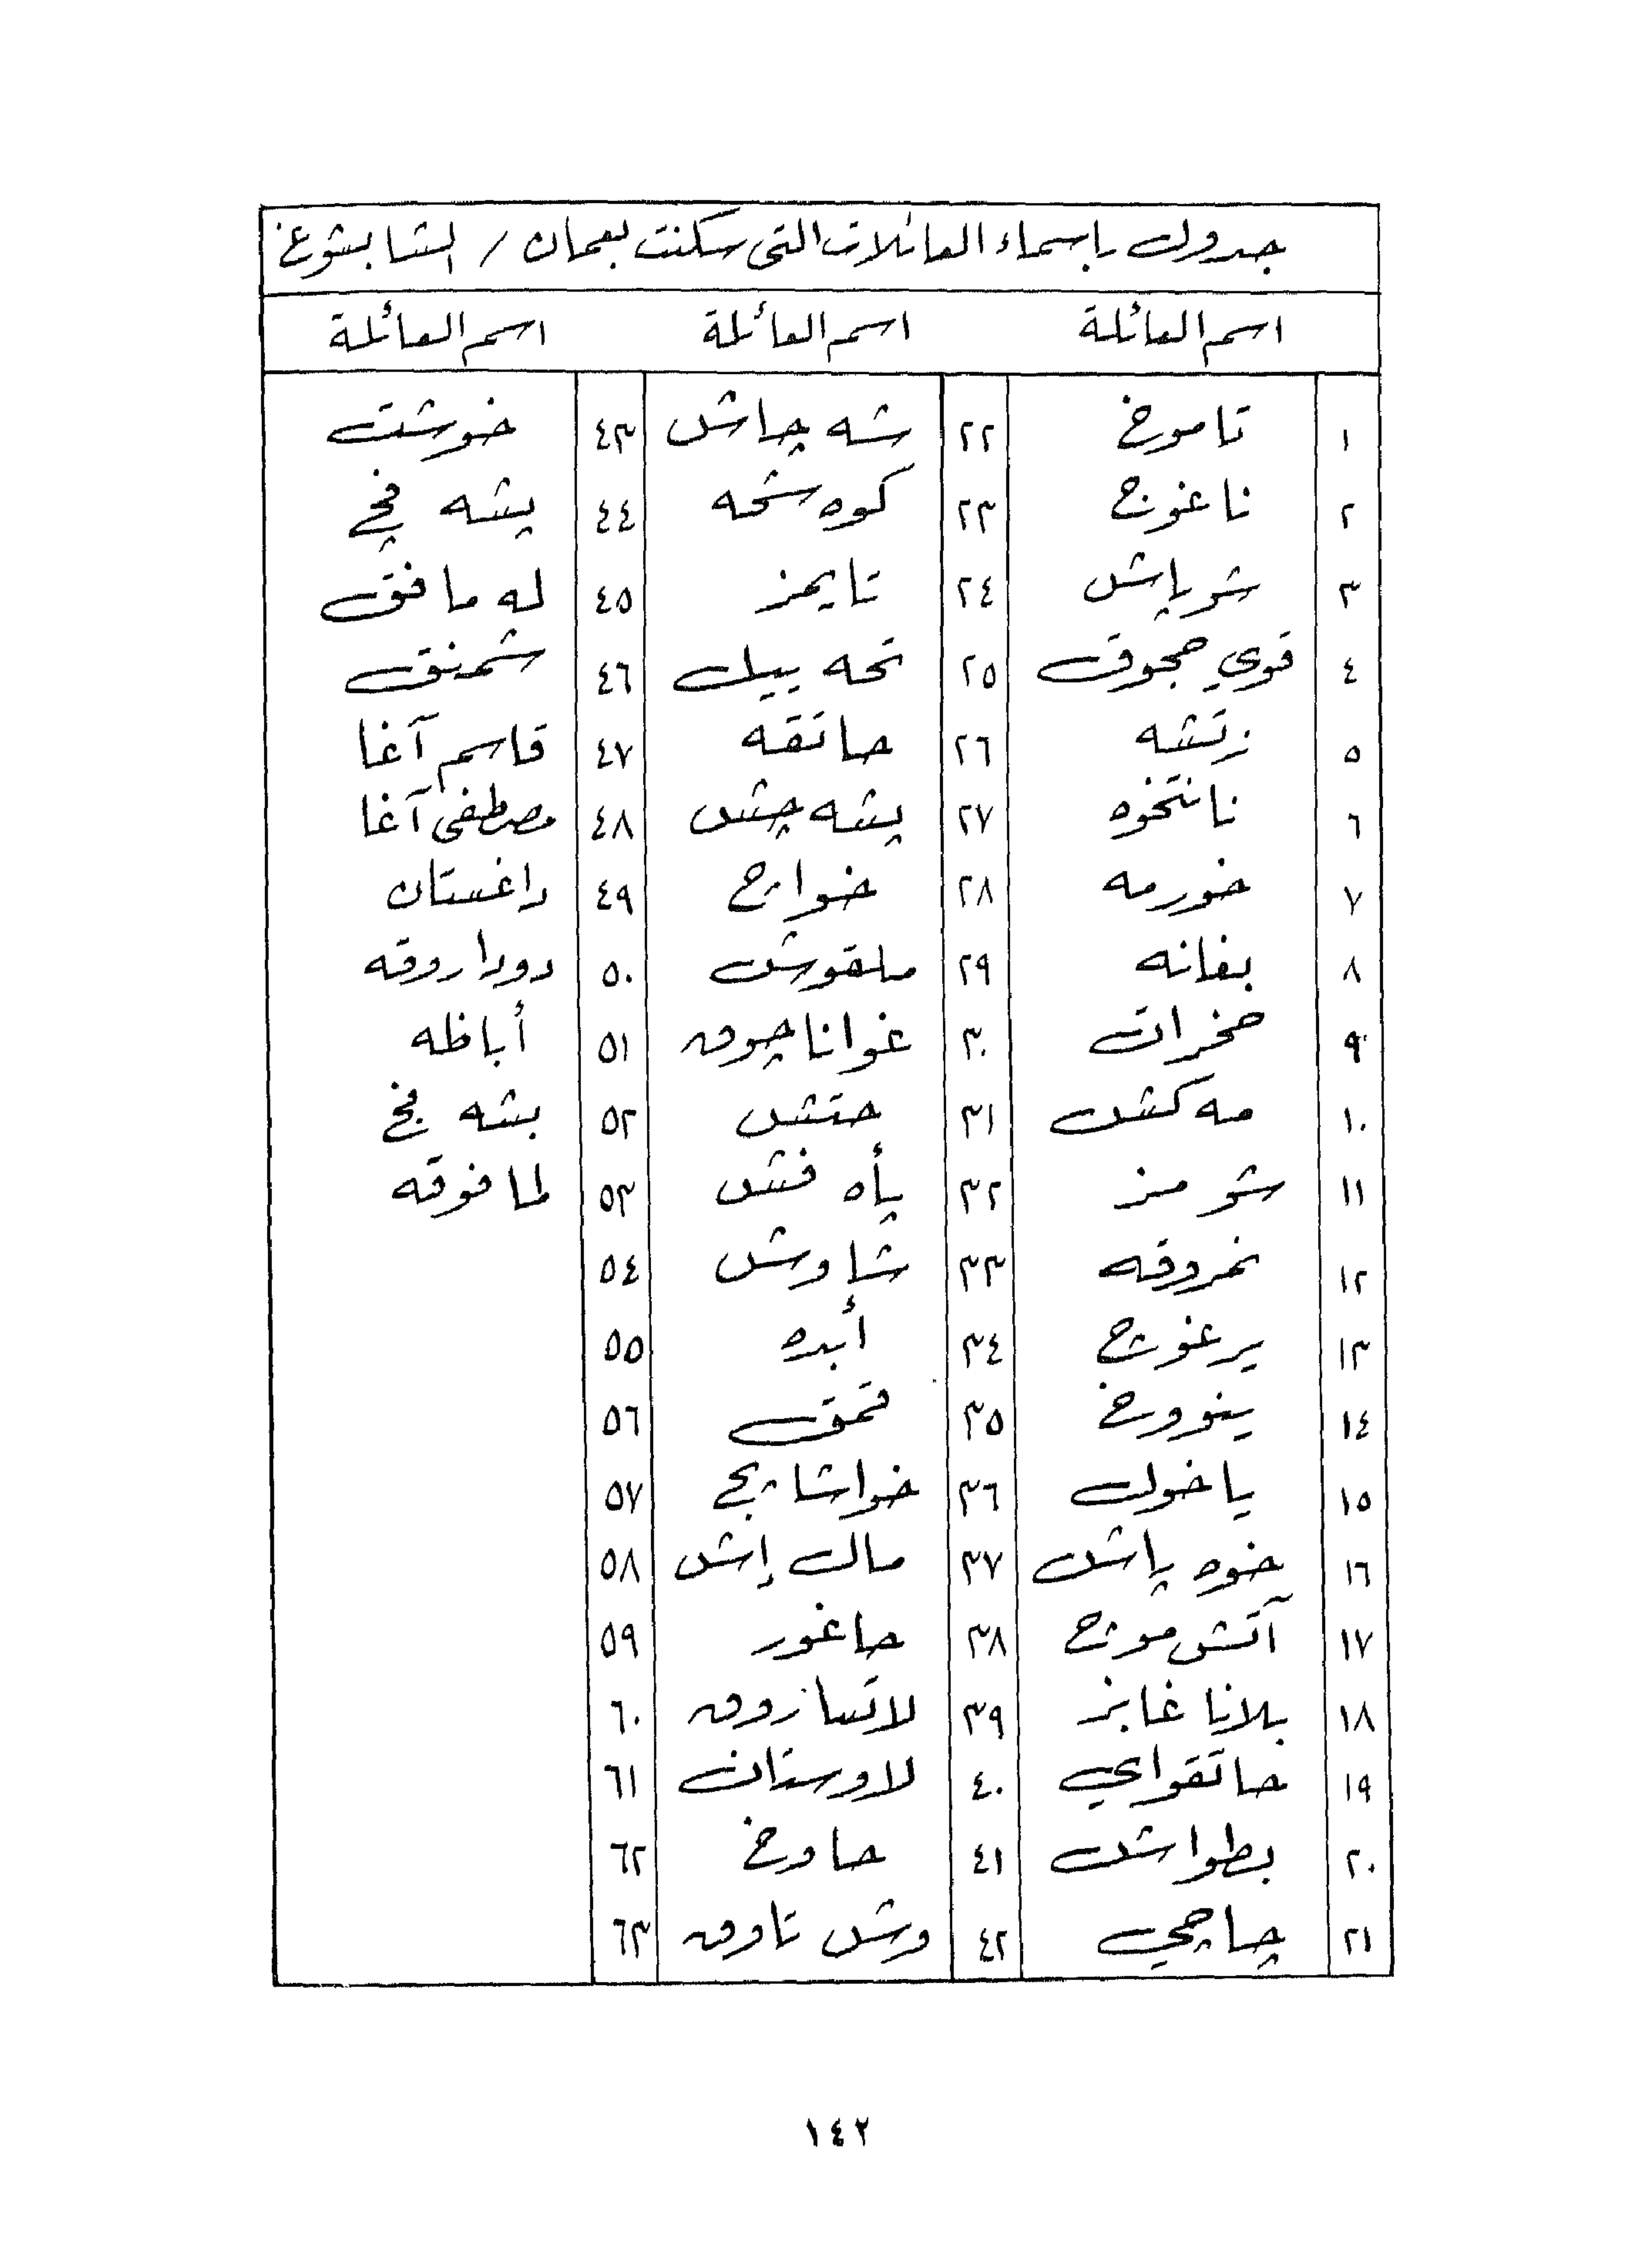 جدول باسماء العائلات التي سكنت بعمان / الشابسوغ
اسم العائلة اسم العائلة اسم العائلة
١ تاموخ ٢٢ شه چاش ٤٣ خوشت
٢ ناغوج ٢٣ كوه شحه ٤٤ پشه في
٣ شوپاش ٢٤ تايمز ٤٥ له مافق
٤ قوي حجوق ٢٥ تحه بيك ٤٦ شمنق
٥ زتشه ٢٦ حاتقه ٤٧ قاسم آغا
٦ ناتخوه ٢٧ پشه چش ٤٨ مصطفى آغا
٧ خورمه ٢٨ خواژ ٤٩ داغستان
٨ بغانه ٢٩ ملقوش ٥٠ دوداروقه
٩ حخرات ٣٠ غواناچوق ٥١ أباظه
١٠ مه كش ٣١ حتش ٥٢ بشه
١١ شومز ٣٢ پأه فش ٥٣ لمافوقه
١٢ نمروقه ٣٣ شاوش ٥٤
١٣ ٣٤ أبده ٥٥
١٤ ينوورخ ٣٥ قمق ٥٦
١٥ ياخول ٣٦ ٥٧
١٦ خوه پاش ٣٧ مال إش ٥٨
١٧ ٣٨ حاغور ٥٩
١٨ بلانا غابز ٣٩ لاتسازوق ٦٠
١٩ حاتقواي ٤٠ لاوستان ٦١
٢٠ بطواش ٤١ حاورخ ٦٢
٢١ چاچي ٤٢ وش تاوق ٦٣
١٤٢